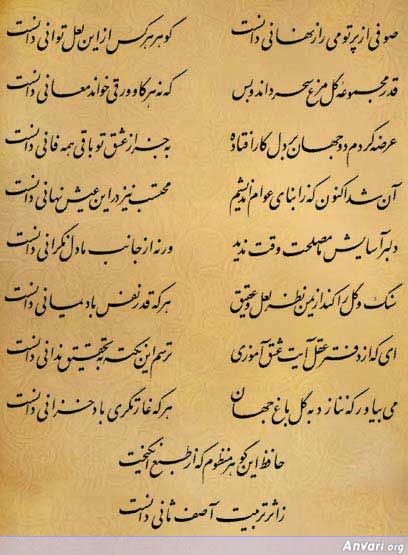 صوفی از پرتو می راز نهانی دانست گوهر هر کس از این لعل توانی دانست
قدر مجموعه گل مرغ سحر داند و بس که نه هر کاو ورقی خواند معانی دانست
عرضه کردم دو جهان بر دل کار افتاده به جز از عشق تو باقی همه فانی دانست
آن شد اکنون که ز ابنای عوام اندیشم محتسب نیز در این عیش نهانی دانست
دلبر آسایش ما مصلحت وقت ندید ور نه از جانب ما دل نگرانی دانست
سنگ و گل را کند از یمن نظر لعل و عقیق هر که قدر نفس باد یمانی دانست
ای که از دفتر عقل آیت عشق آموزی ترسم این نکته به تحقیق ندانی دانست
می بیاور که ننازد به گل باغ جهان هر که غارتگری باد خزانی دانست
حافظ این گوهر منظوم که از طبع انگیخت
ز اثر تربیت آصف ثانی دانست
Anvari.org